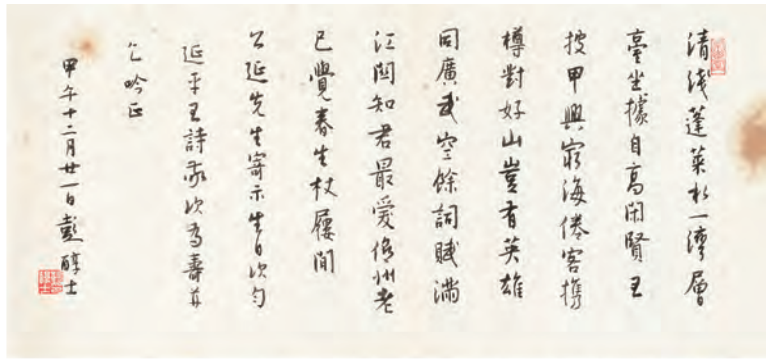 清淺蓬萊水一灣層
臺坐據自高閑賢王
披甲興窮海倦客攜
樽對好山豈有英雄
同廣武空餘詞賦滿
江關知君最愛儋州老
已覺春生杖屨間
公延先生寄示生日次勻
延平王詩敬次為壽并
乞吟正
甲午十二月廿一日彭醇士